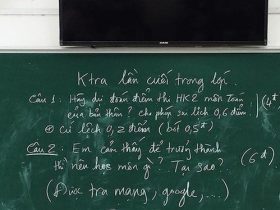 Ktra lần cuối trong lớp
Câu 1: Hãy dự đoán điểm thi HK2 môn Toán
của bản thân? cho phép sai lệch 0,6 điểm. (4đ)
⊕ cứ lệch 0,2 điểm (bớt 0,5đ)
Câu 2: Em cảm thấy để trưởng thành
thì nên học môn gì? Tại sao? (6đ)
(Được tra mạng, google,...)